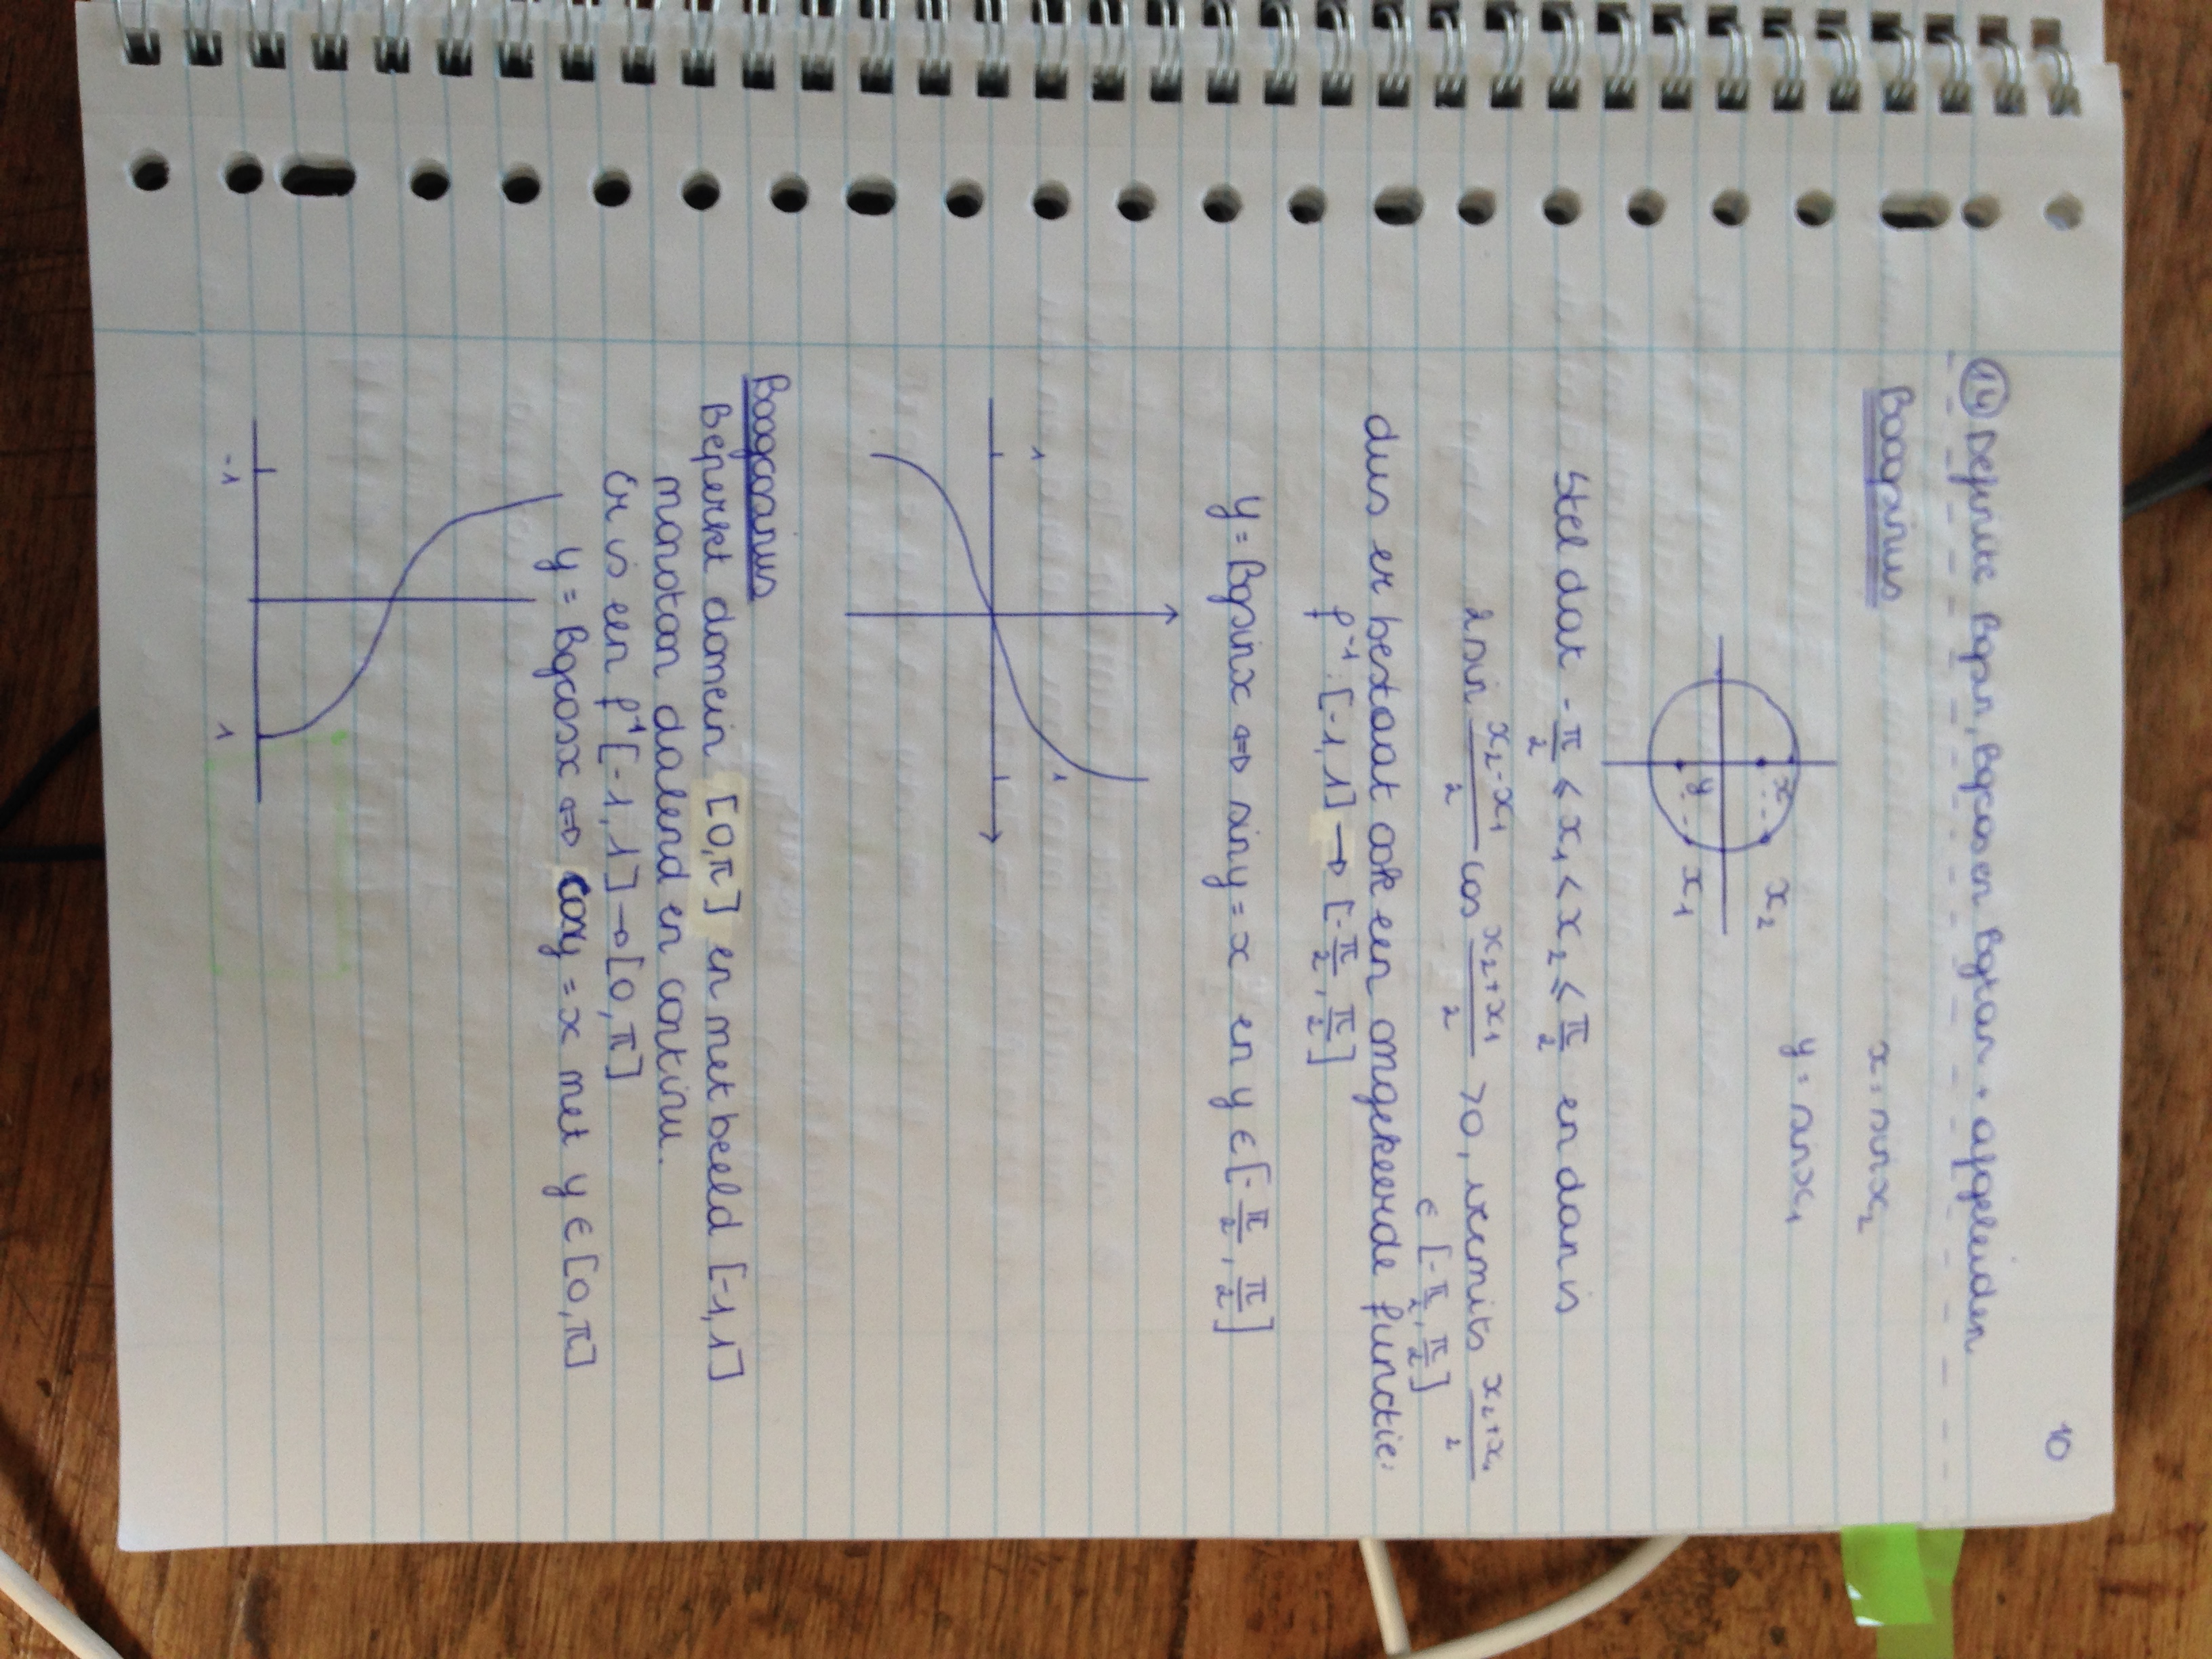 10
14 Definitie Bgsin, Bgcos en Bgtan + afgeleiden
Boogsinus
x = sin x₂
y = sin x₁
x x₂
y x₁
Stel dat -π/2 ≤ x₁ < x₂ ≤ π/2 en dan is
2 sin (x₂-x₁)/2 cos (x₂+x₁)/2 >0, vermits (x₂+x₁)/2
∈ [-π/2, π/2]
dus er bestaat ook een omgekeerde functie:
f⁻¹: [-1, 1] → [-π/2, π/2]
y = Bgsin x ⇔ sin y = x en y ∈ [-π/2, π/2]
1 1
Boogcosinus
Beperkt domein [0,π] en met beeld [-1,1]
monotoon dalend en continu.
Er is een f⁻¹ [-1, 1] → [0, π]
y = Bgcos x ⇔ cos y = x met y ∈ [0,π]
-1 1